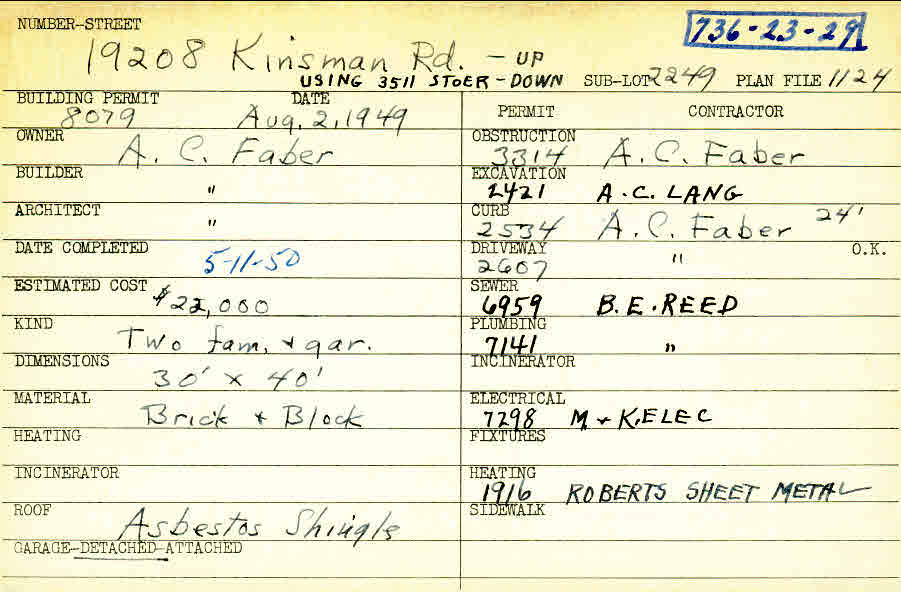 NUMBER-STREET
736-23-29
19208 Kinsman Rd. - UP
USING 3511 STOER-DOWN SUB-LOT 2249 PLAN FILE 1124
BUILDING PERMIT DATE
8079 Aug. 2, 1949
OWNER
A. C. Faber
BUILDER
"
ARCHITECT
"
DATE COMPLETED
5-11-50
ESTIMATED COST
$22,000
KIND
Two fam. + gar.
DIMENSIONS
30' x 40'
MATERIAL
Brick + Block
HEATING
INCINERATOR
ROOF
Asbestos Shingle
GARAGE-DETACHED-ATTACHED
PERMIT CONTRACTOR
OBSTRUCTION
3314 A.C. Faber
EXCAVATION
2421 A.C. LANG
CURB
2534 A.C. Faber 24'
DRIVEWAY O.K.
2607 "
SEWER
6959 B.E. REED
PLUMBING
7141 "
INCINERATOR
ELECTRICAL
7298 M + K. ELEC
FIXTURES
HEATING
1916 ROBERTS SHEET METAL
SIDEWALK